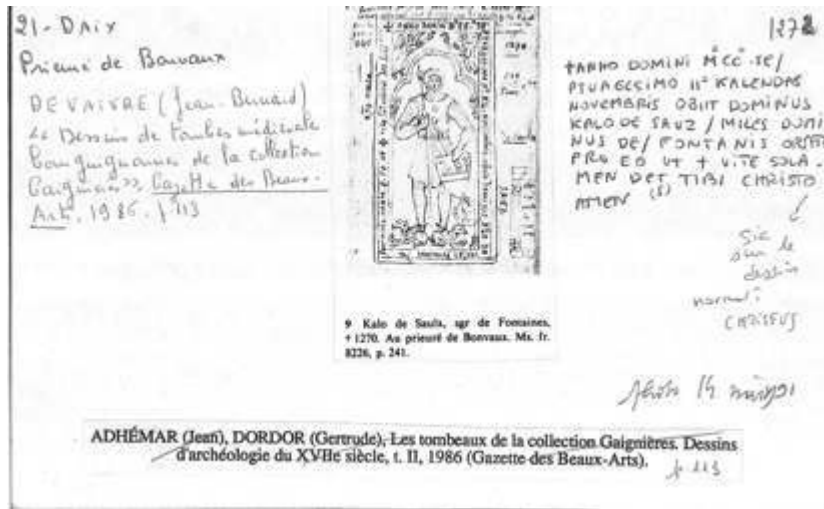 21 - DAIX
1272
Prieuré de Bonvaux
DE VAIVRE (Jean-Bernard)
« Dessins de tombes médiévales
bourguignonnes de la collection
Gaignières », Gazette des Beaux-
Arts, 1986, p 113
+ANNO DOMINI MCC SE/
PTUAGESIMO II° KALENDAS
NOVEMBRIS OBIIT DOMINUS
KALO DE SAUZ / MILES DOMI
NUS DE / FONTANIS ORATE
PRO EO UT + VITE SOLA.
MEN DET TIBI CHRISTO
AMEN (S)
Sic
sur le
dessin
normal :
CHRISTUS
9 Kalo de Saulx, sgr de Fontaines,
+ 1270. Au prieuré de Bonvaux. Ms. fr.
8226, p. 241.
ADHÉMAR (Jean), DORDOR (Gertrude), Les tombeaux de la collection Gaignières. Dessins
d'archéologie du XVIIe siècle, t. II, 1986 (Gazette des Beaux-Arts).
p 113